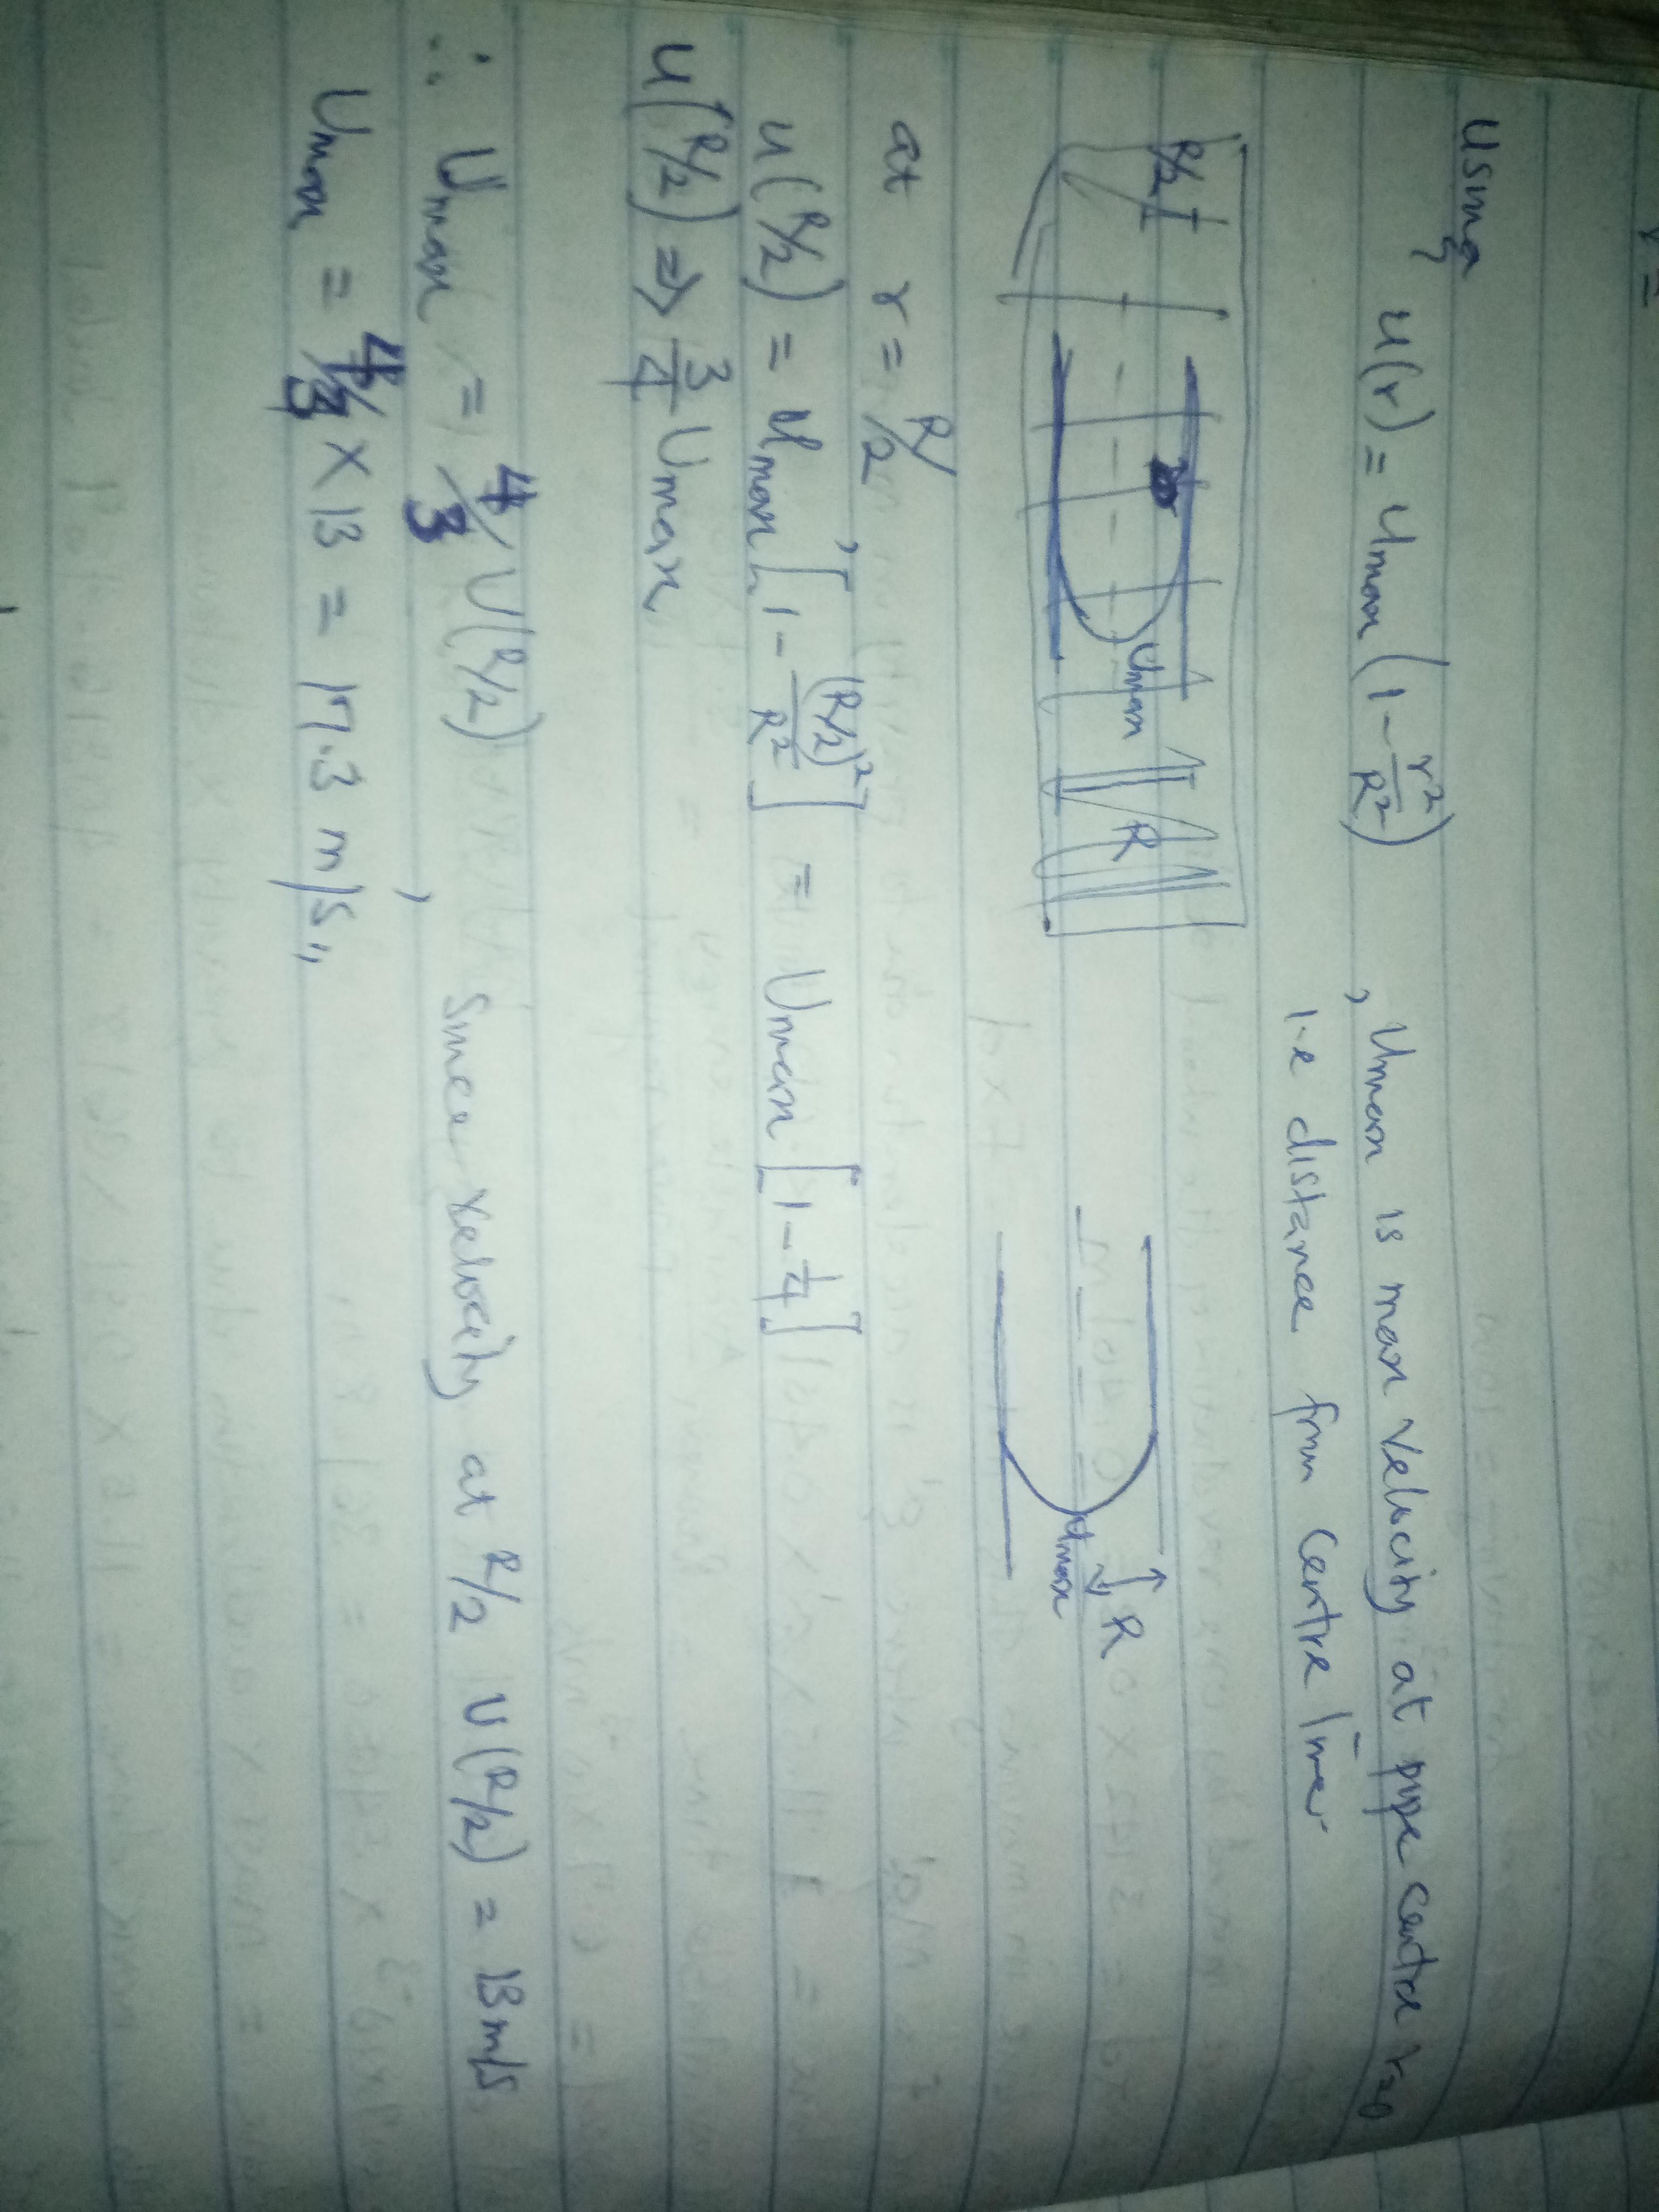 r =
using
u(r) = Umax (1 - r²/R²) , Umax is max velocity at pipe centre r=0
i.e distance from centre line
R/2
Umax
R
R
Umax
at r = R/2 ,
u(R/2) = Umax [1 - (R/2)²/R²] = Umax [1 - 1/4]
u(R/2) => 3/4 Umax
∴ Umax = 4/3 U(R/2) , Since velocity at R/2 U(R/2) = 13 m/s
Umax = 4/3 × 13 = 17.3 m/s,,